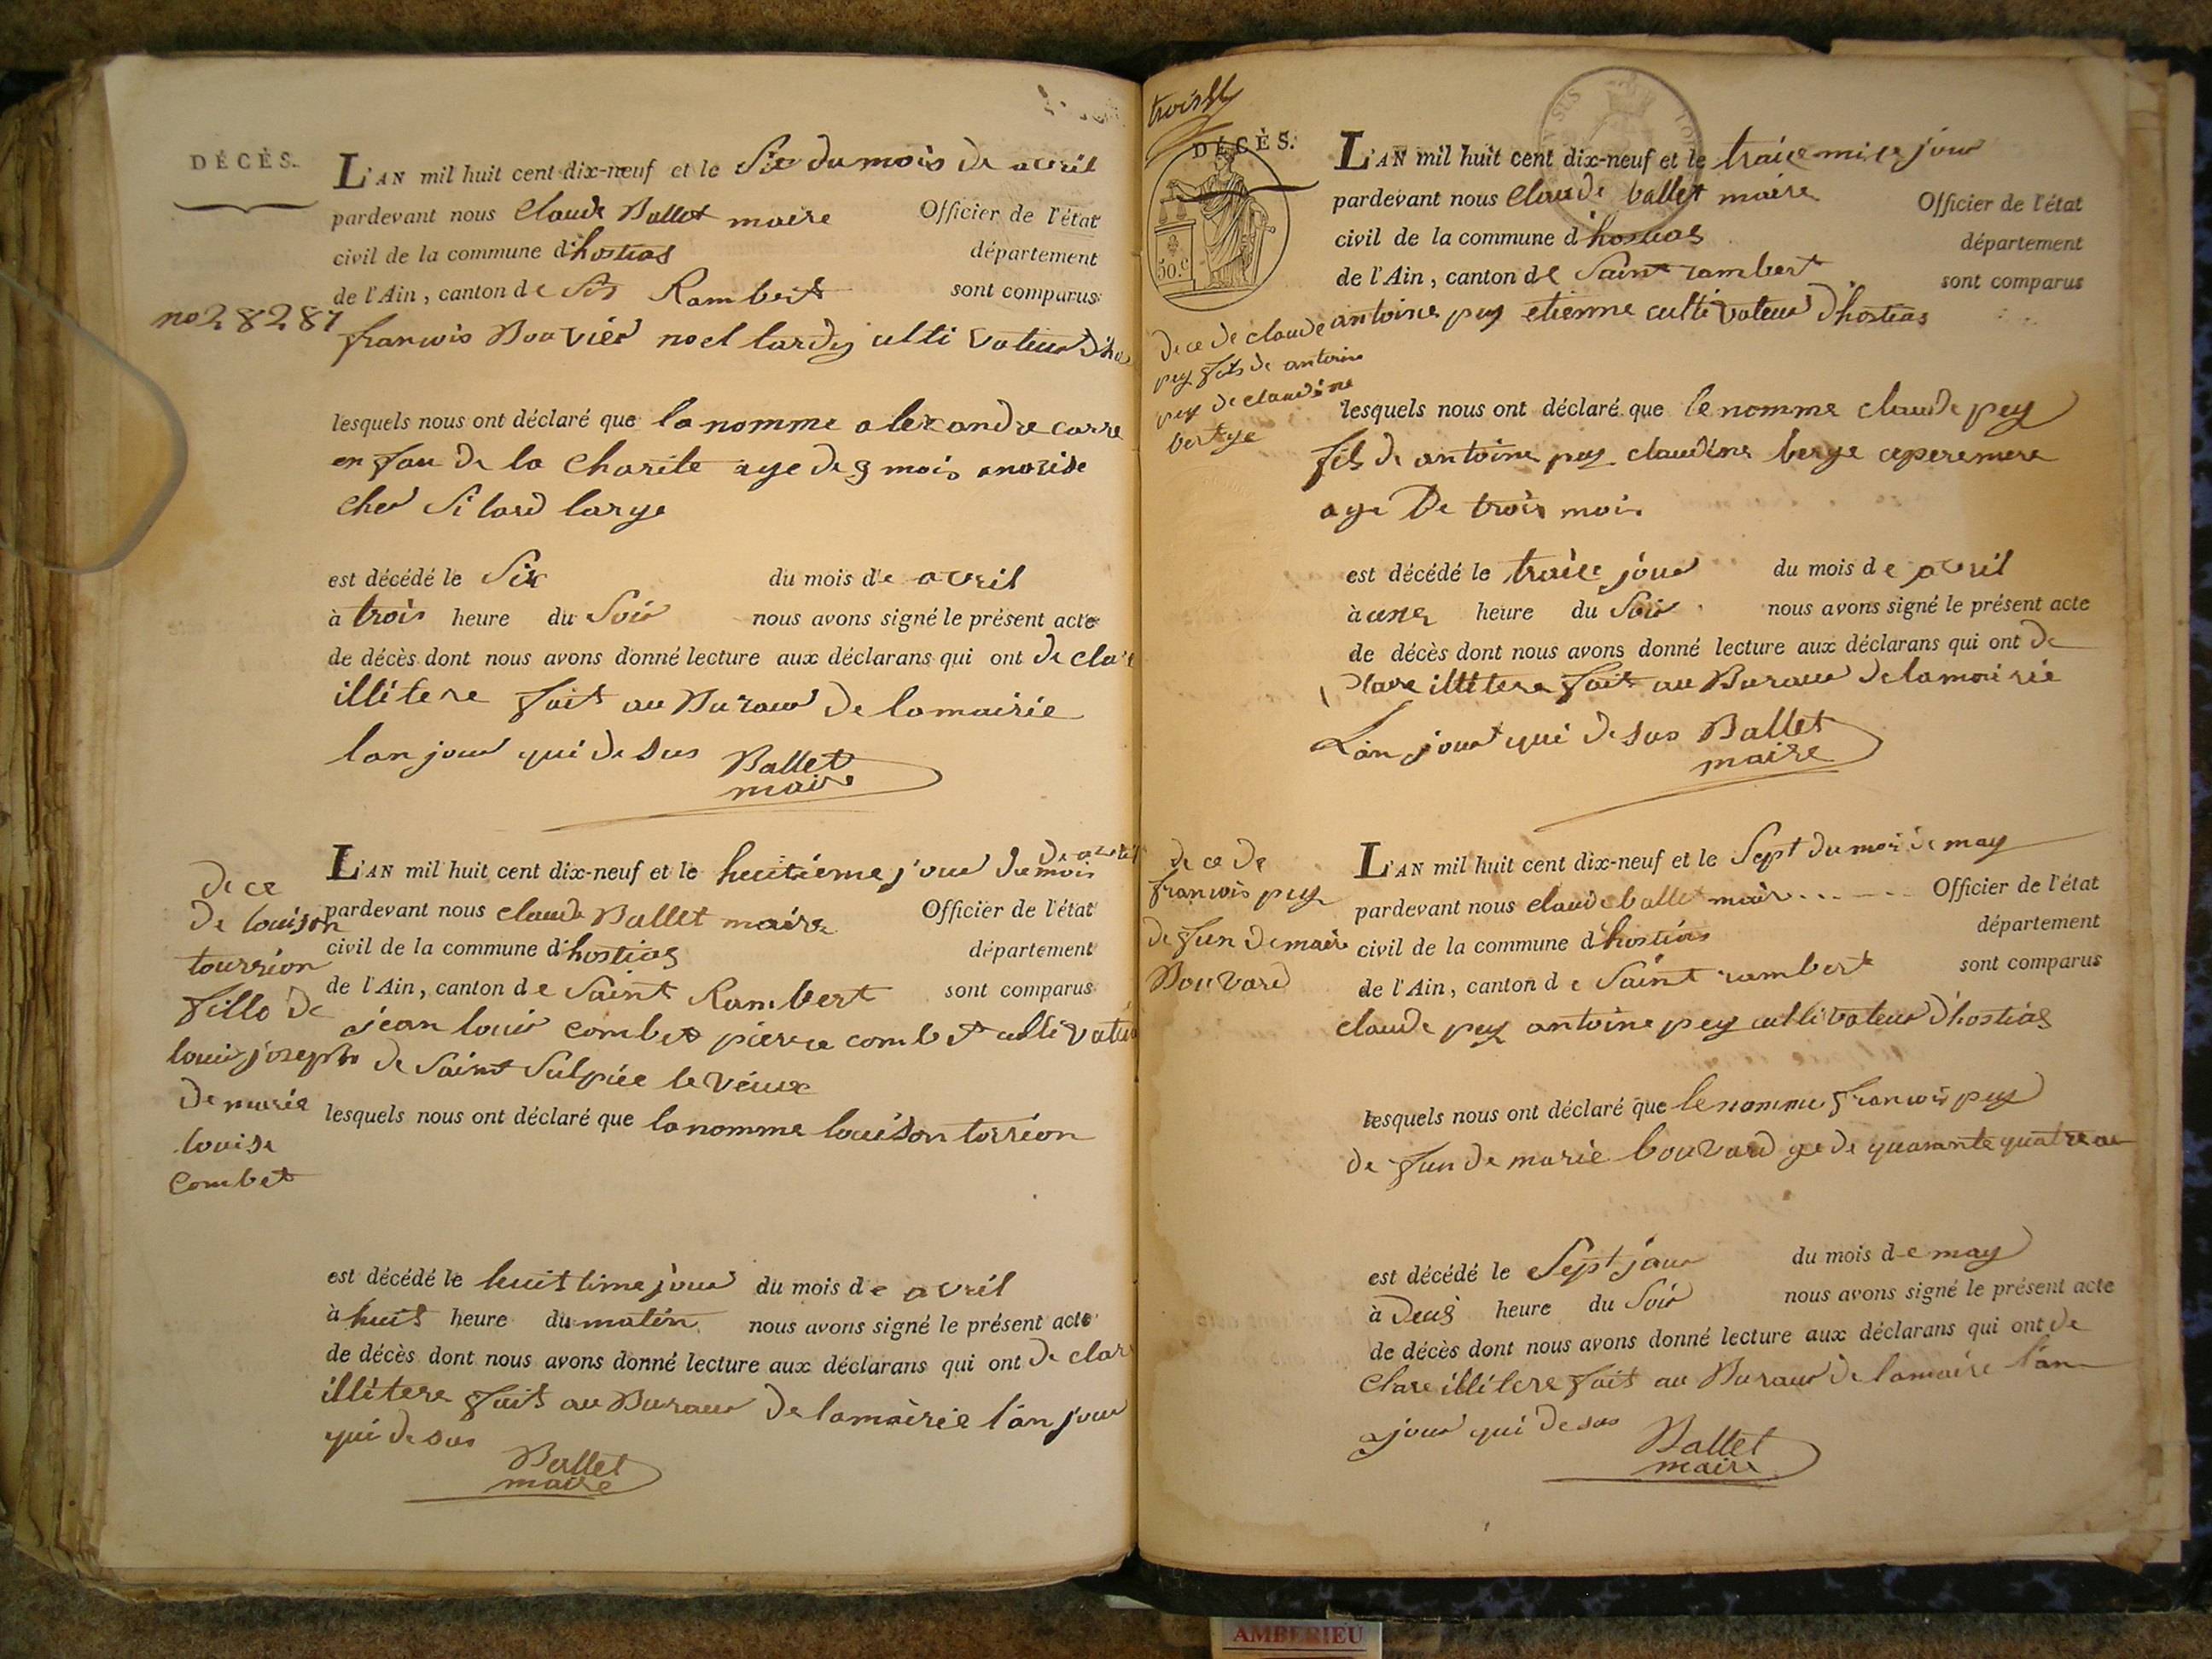 DÉCÈS.
L'AN mil huit cent dix-neuf et le Six du mois de avril
pardevant nous Claude Ballet maire Officier de l'état
civil de la commune d'hostias département
de l'Ain, canton de St Rambert sont comparus
no 28287
francois Bouvier noel lardy culti vateur d'ho
lesquels nous ont déclaré que la nomme alexandre carre
en fan de la Charite age de 9 mois
chez Silard large
est décédé le Six du mois de avril
à trois heure du Soir nous avons signé le présent acte
de décès dont nous avons donné lecture aux déclarans qui ont de clar
illitere fait au Buraux de lamairie
lan jour qui desus Ballet
maire
L'AN mil huit cent dix-neuf et le huitième jour du mois de avril
pardevant nous claude Ballet maire Officier de l'état
civil de la commune d'hostias département
de l'Ain, canton de Saint Rambert sont comparus
jean louis combet pierre combet cultivateur
de Saint Sulpice le vieux
lesquels nous ont déclaré que la nomme louison torrion
dece
de louison
tourrion
fille de
louis joseph
de marie
louise
combet
est décédé le huittime jour du mois de avril
à huit heure du matin nous avons signé le présent acte
de décès dont nous avons donné lecture aux déclarans qui ont de clar
illitere fait au Buraux de lamairie l'an jour
qui desus
Ballet
maire
DÉCÈS.
50.c
L'AN mil huit cent dix-neuf et le traice jour
pardevant nous Claude ballet maire Officier de l'état
civil de la commune d'hostias département
de l'Ain, canton de Saint rambert sont comparus
antoine pey etienne cultivateur d'hostias
dece de claude
pey fils de antoine
pey de claudine
berge
lesquels nous ont déclaré que le nomme claude pey
fils de antoine pey claudine berge ceperemere
age De trois mois
est décédé le traice jour du mois de avril
à une heure du Soir nous avons signé le présent acte
de décès dont nous avons donné lecture aux déclarans qui ont de
clare illitere fait au Buraux de lamairie
L'an jour qui desus Ballet
maire
L'AN mil huit cent dix-neuf et le Sept du moi de may
pardevant nous claude ballet mair Officier de l'état
civil de la commune d'hostias département
de l'Ain, canton de Saint rambert sont comparus
claude pey antoine pey cultivateur d'hostias
dece de
francois pey
defun de marie
Bouvard
lesquels nous ont déclaré que le nomme francois pey
de fun de marie bouvard ge de quarante quatre an
est décédé le Sept jour du mois de may
à Deus heure du Soir nous avons signé le présent acte
de décès dont nous avons donné lecture aux déclarans qui ont de
clare illitere fait au Buraux de lamaire l'an
jour qui desus Ballet
maire
AMBERIEU